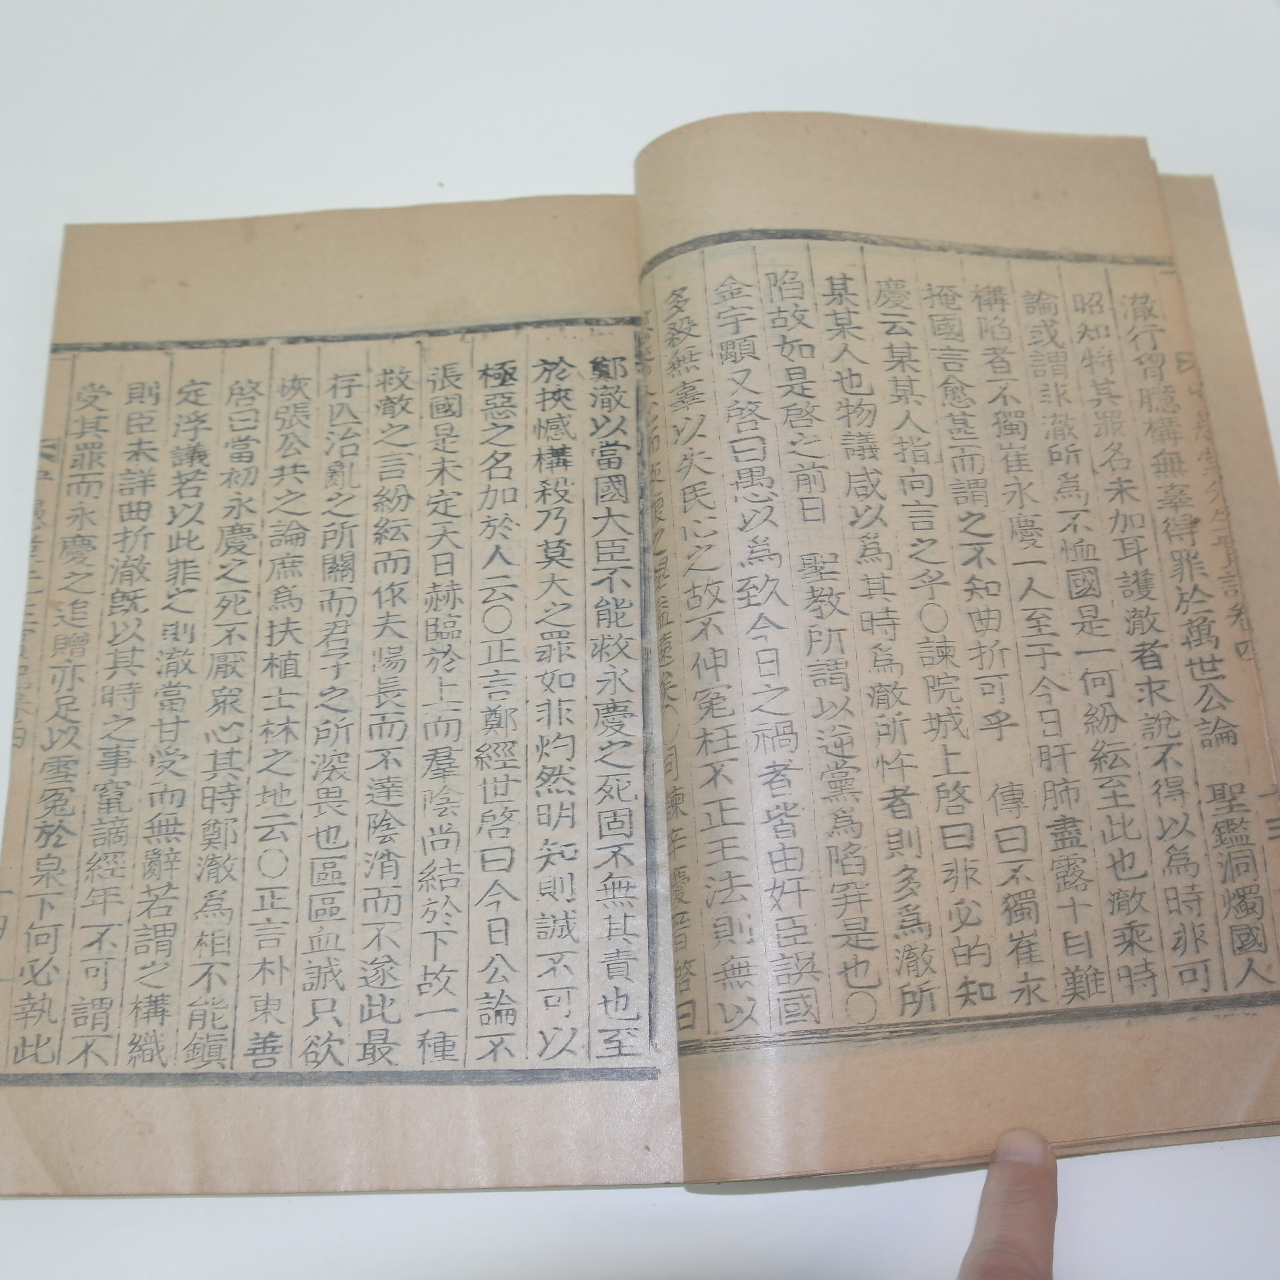 澈行胷臆構無辜得罪於萬世公論 聖鑑洞燭國人
昭知特其罪名未加耳護澈者求說不得以為時非可
論或謂非澈所為不恤國是一何紛紜至此也澈乘時
構陷者不獨崔永慶一人至于今日肝肺盡露十目難
掩國言愈甚而謂之不知曲折可乎 傳曰不獨崔永
慶云某某人指向言之乎〇諫院城上啓曰非必的知
某某人也物議咸以為其時為澈所忤者則多為澈所
陷故如是啓之前日 聖敎所謂以逆黨為陷穽是也〇
金宇顒又啓曰愚以為致今日之禍者皆由奸臣誤國
多殺無辜以失民心之故不伸冤枉不正王法則無以
鄭澈以當國大臣不能救永慶之死固不無其責也至
於挾憾構殺乃莫大之罪如非灼然明知則誠不可以
極惡之名加於人云〇正言鄭經世啓曰今日公論不
張國是未定天日赫臨於上而羣陰尚結於下故一種
救澈之言紛紜而作夫陽長而不達陰消而不遂此最
存亡治亂之所關而君子之所深畏也區區血誠只欲
恢張公共之論庶為扶植士林之地云〇正言朴東善
啓曰當初永慶之死不厭衆心其時鄭澈為相不能鎭
定浮議若以此罪之則澈當甘受而無辭若謂之構織
則臣未詳曲折澈旣以其時之事竄謫經年不可謂不
受其罪而永慶之追贈亦足以雪冤於泉下何必執此